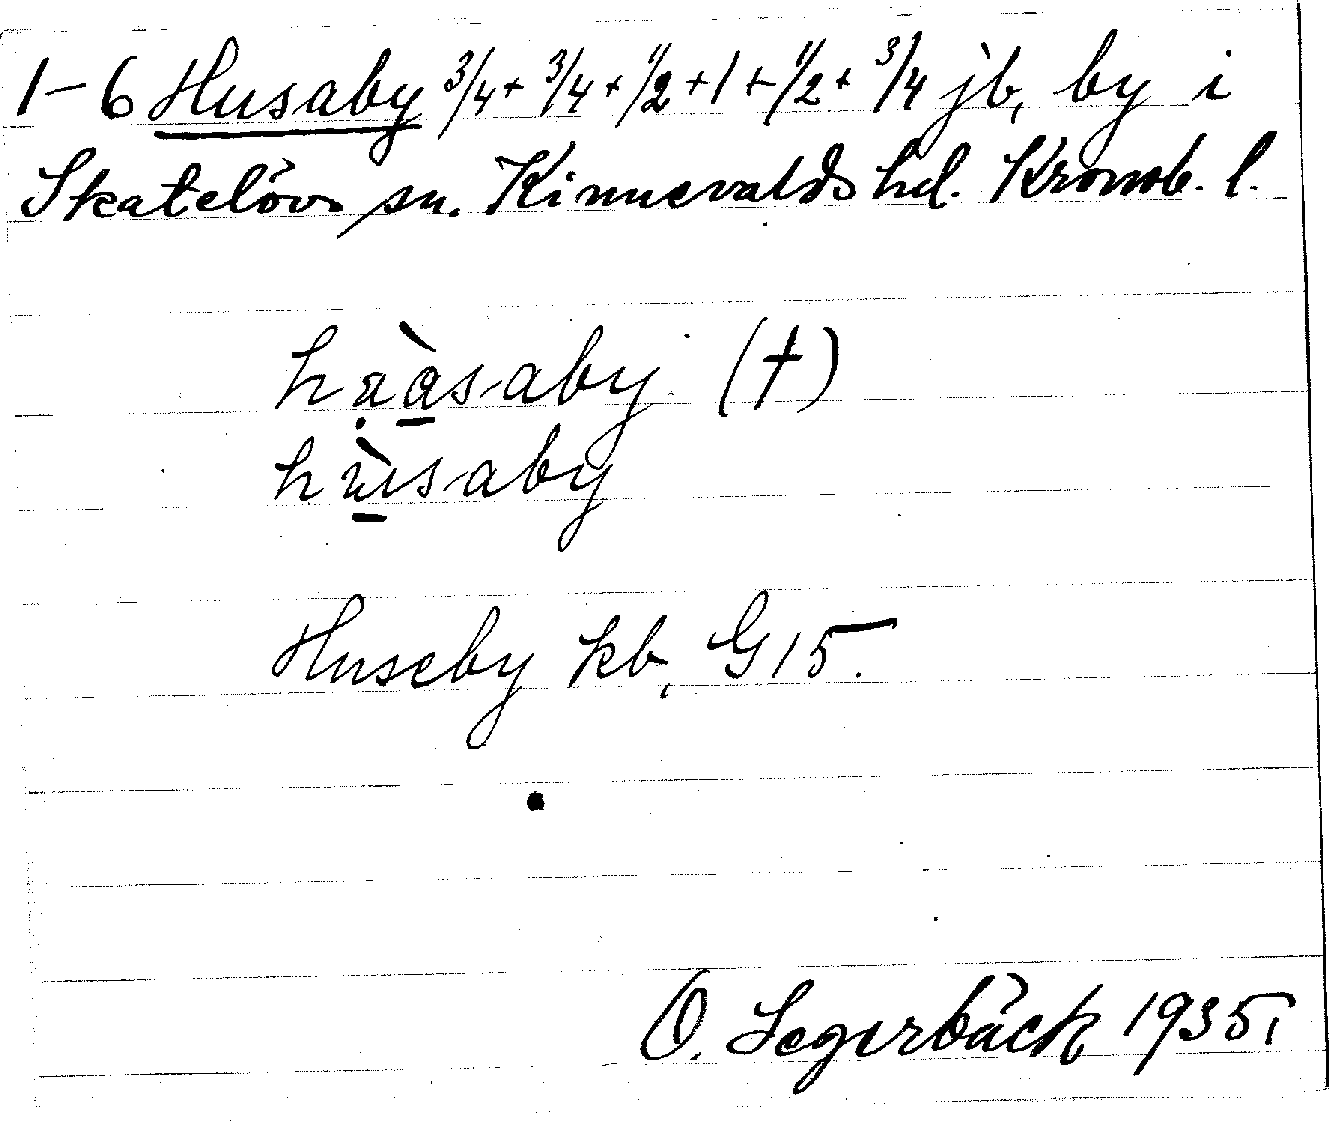 1–6 Husaby 3/4 + 3/4 + 1/2 + 1 + 1/2 + 3/4 jb, by i
Skatelövs sn. Kinnevalds hd. Kronob. l.
(†)
hùsaby
Huseby kb, G15.
O. Segerbäck 1935.